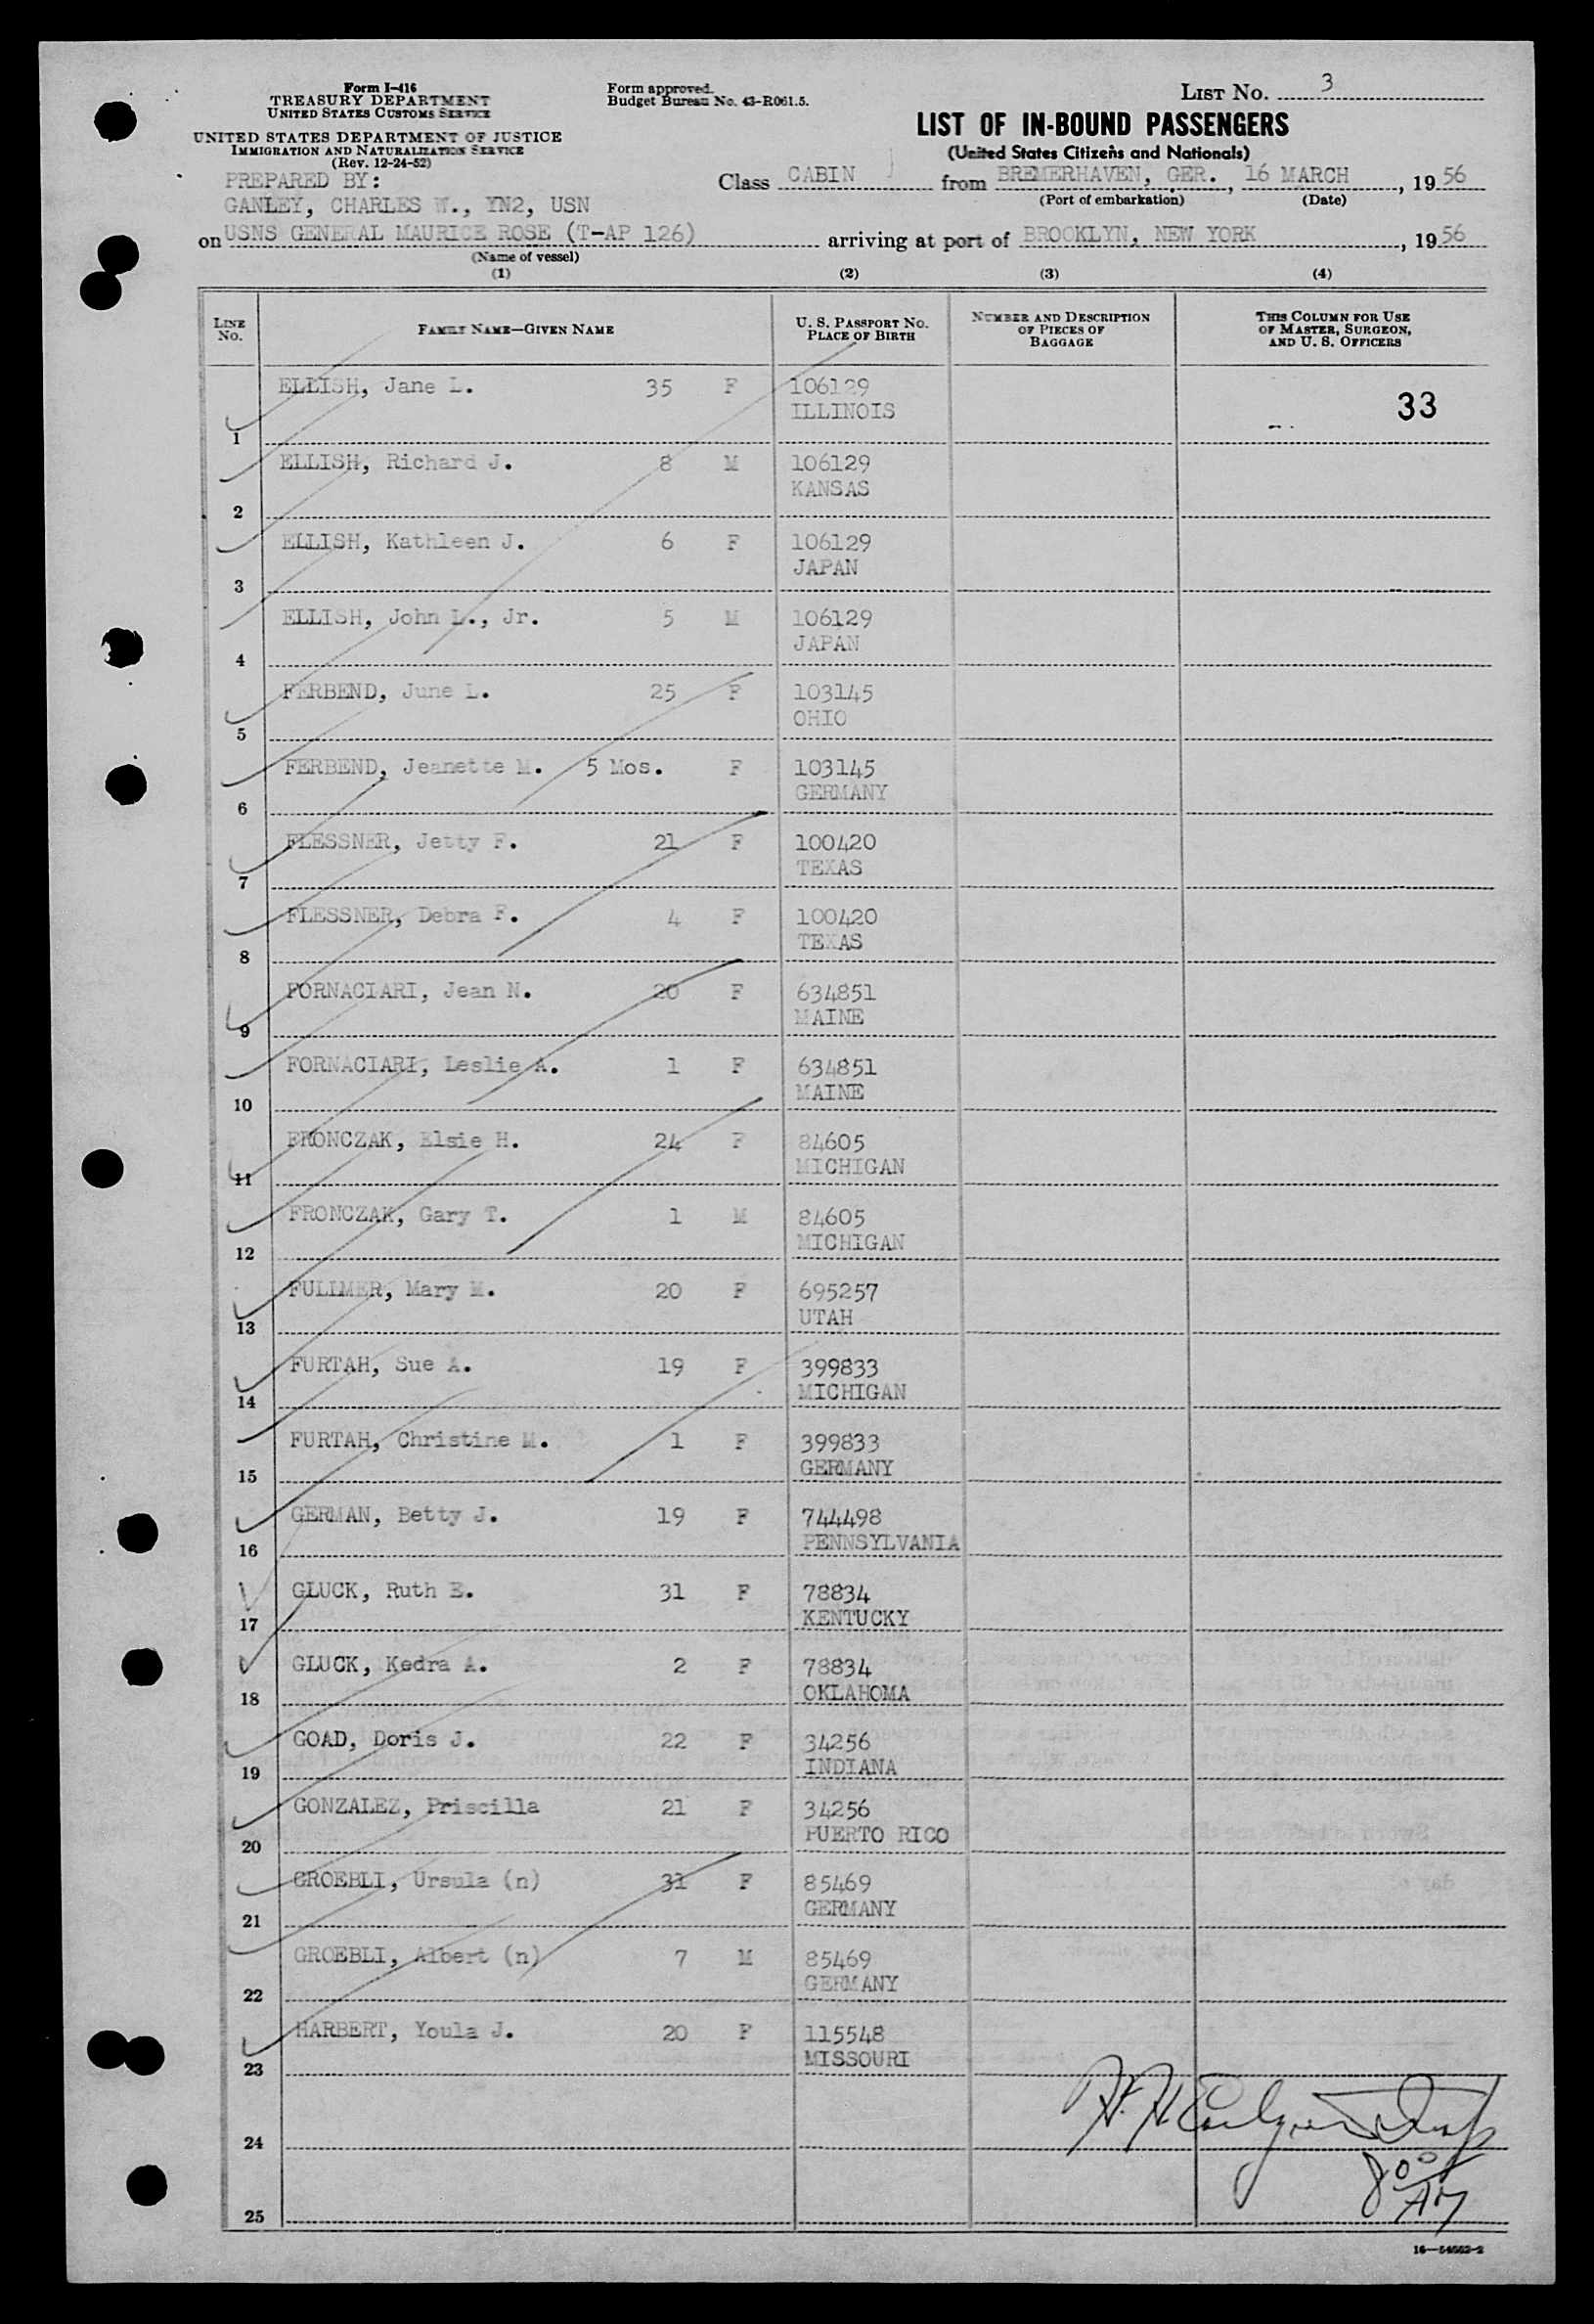 Form I-416
TREASURY DEPARTMENT
UNITED STATES CUSTOMS SERVICE
UNITED STATES DEPARTMENT OF JUSTICE
IMMIGRATION AND NATURALIZATION SERVICE
(Rev. 12-24-52)
Form approved.
Budget Bureau No. 43-R061.5.
LIST NO. 3
LIST OF IN-BOUND PASSENGERS
(United States Citizens and Nationals)
PREPARED BY:
GANLEY, CHARLES W., YN2, USN
Class CABIN from BREMERHAVEN, GER., 16 MARCH, 1956
(Port of embarkation) (Date)
on USNS GENERAL MAURICE ROSE (T-AP 126) arriving at port of BROOKLYN, NEW YORK, 1956
(Name of vessel)
(1) (2) (3) (4)
LINE NO. FAMILY NAME—GIVEN NAME U. S. PASSPORT NO. PLACE OF BIRTH NUMBER AND DESCRIPTION OF PIECES OF BAGGAGE THIS COLUMN FOR USE OF MASTER, SURGEON, AND U. S. OFFICERS
ELLISH, Jane L. 35 F 106129
1 ILLINOIS 33
ELLISH, Richard J. 8 M 106129
2 KANSAS
ELLISH, Kathleen J. 6 F 106129
3 JAPAN
ELLISH, John L., Jr. 5 M 106129
4 JAPAN
FERBEND, June L. 25 F 103145
5 OHIO
FERBEND, Jeanette M. 5 Mos. F 103145
6 GERMANY
FLESSNER, Jetty F. 21 F 100420
7 TEXAS
FLESSNER, Debra F. 4 F 100420
8 TEXAS
FORNACIARI, Jean N. 20 F 634851
9 MAINE
FORNACIARI, Leslie A. 1 F 634851
10 MAINE
FRONCZAK, Elsie H. 24 F 84605
11 MICHIGAN
FRONCZAK, Gary T. 1 M 84605
12 MICHIGAN
FULLMER, Mary M. 20 F 695257
13 UTAH
FURTAH, Sue A. 19 F 399833
14 MICHIGAN
FURTAH, Christine M. 1 F 399833
15 GERMANY
GERMAN, Betty J. 19 F 744498
16 PENNSYLVANIA
GLUCK, Ruth E. 31 F 78834
17 KENTUCKY
GLUCK, Kedra A. 2 F 78834
18 OKLAHOMA
GOAD, Doris J. 22 F 34256
19 INDIANA
GONZALEZ, Priscilla 21 F 34256
20 PUERTO RICO
GROEBLI, Ursula (n) 31 F 85469
21 GERMANY
GROEBLI, Albert (n) 7 M 85469
22 GERMANY
HARBERT, Youla J. 20 F 115548
23 MISSOURI
24
25
800
AM